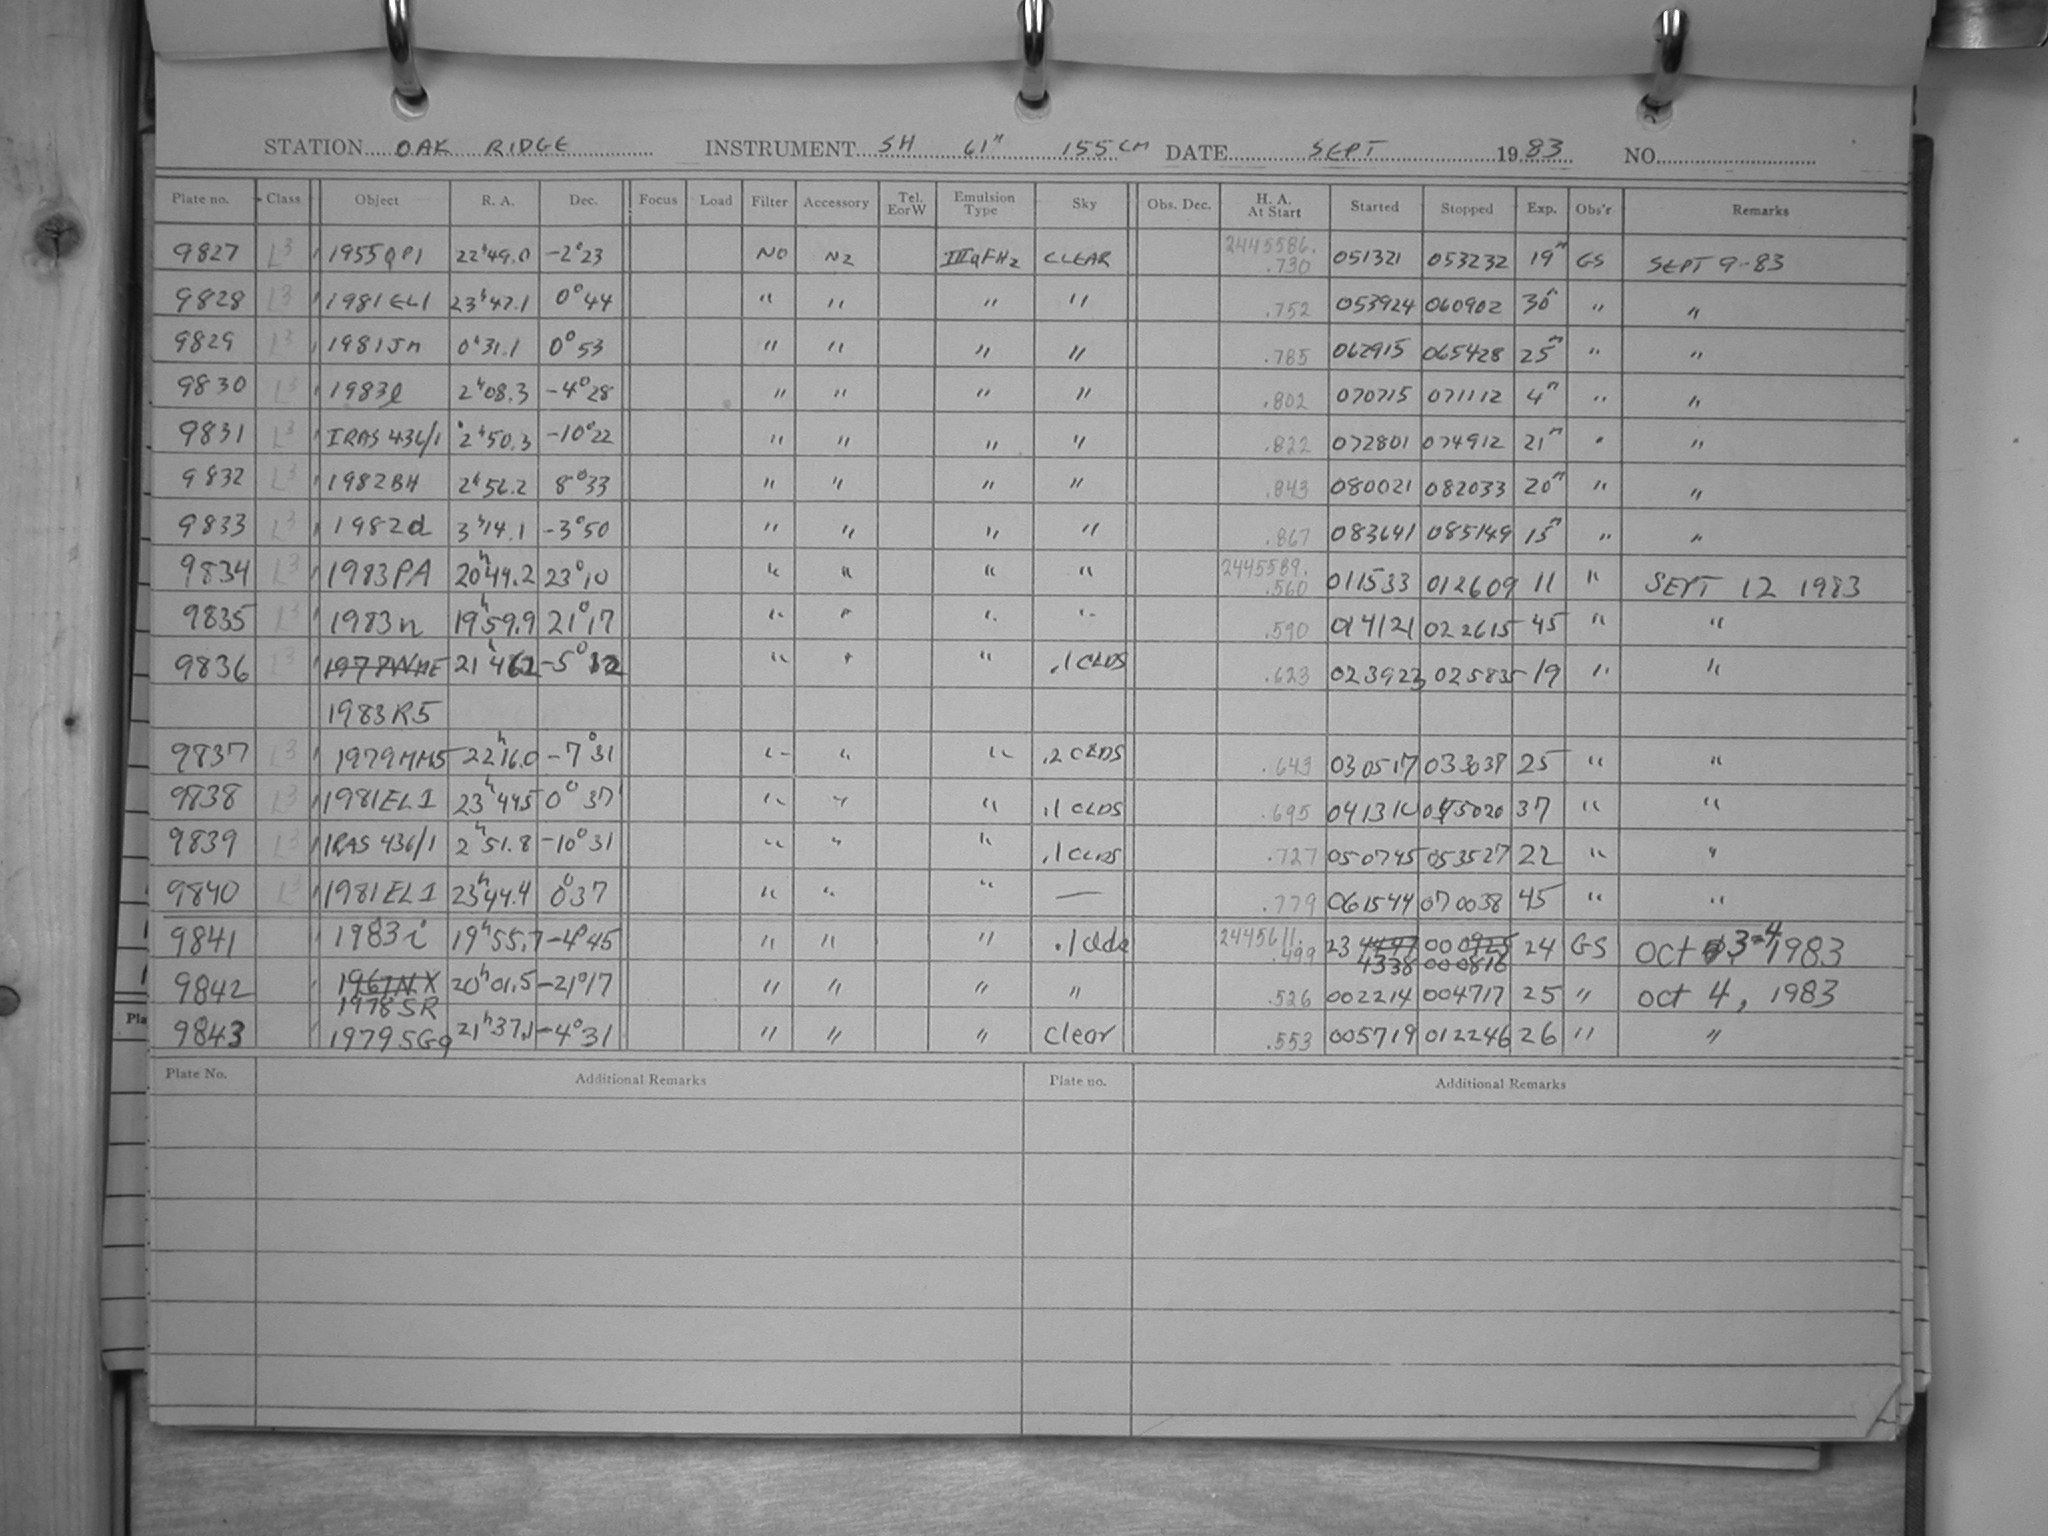 STATION OAK RIDGE INSTRUMENT SH 61" 155 CM DATE SEPT 1983 NO.
Plate no. Class Object R. A. Dec. Focus Load Filter Accessory Tel. EorW Emulsion Type Sky Obs. Dec. H. A. At Start Started Stopped Exp. Obs'r Remarks
9827 L3 1955QP1 22h49.0 -2°23 NO N2 IIIaFH2 CLEAR 2445586. .730 051321 053232 19m GS SEPT 9-83
9828 L3 1981EL1 23h47.1 0°44 " " " " .752 053924 060902 30m " "
9829 L3 1981JM 0h31.1 0°53 " " " " .785 062915 065428 25m " "
9830 L3 1983l 2h08.3 -4°28 " " " " .802 070715 071112 4m " "
9831 L3 IRAS 436/1 2h50.3 -10°22 " " " " .822 072801 074912 21m " "
9832 L3 1982BH 2h56.2 8°33 " " " " .843 080021 082033 20m " "
9833 L3 1982d 3h14.1 -3°50 " " " " .867 083641 085149 15m " "
9834 L3 1983PA 20h49.2 23°10 " " " " 2445589. .560 011533 012609 11 " SEPT 12 1983
9835 L3 1983n 19h59.9 21°17 " " " " .590 014121 022615 45 " "
9836 L3 21h -5°12 " " " .1 CLDS .623 023923 025835 19 " "
1983RS
9837 L3 1979MM5 22h16.0 -7°31 " " " .2 CLDS .643 030517 033039 25 " "
9838 L3 1981EL1 23h44.5 0°37 " " " .1 CLDS .695 045020 37 " "
9839 L3 IRAS 436/1 2h51.8 -10°31 " " " .1 CLDS .727 050745 053527 22 " "
9840 L3 1981EL1 23h44.4 0°37 " " " — .779 061544 070038 45 " "
9841 1983i 19h55.7 -4°45 " " " .1 clds 2445611. .499 23 000925 24 GS oct 3-4 1983
4338 000816
9842 1967NX 20h01.5 -21°17 " " " " .526 002214 004717 25 " oct 4, 1983
1978SR
9843 1979SG9 21h37.1 -4°31 " " " clear .553 005719 012246 26 " "
Plate No. Additional Remarks Plate no. Additional Remarks
Pla